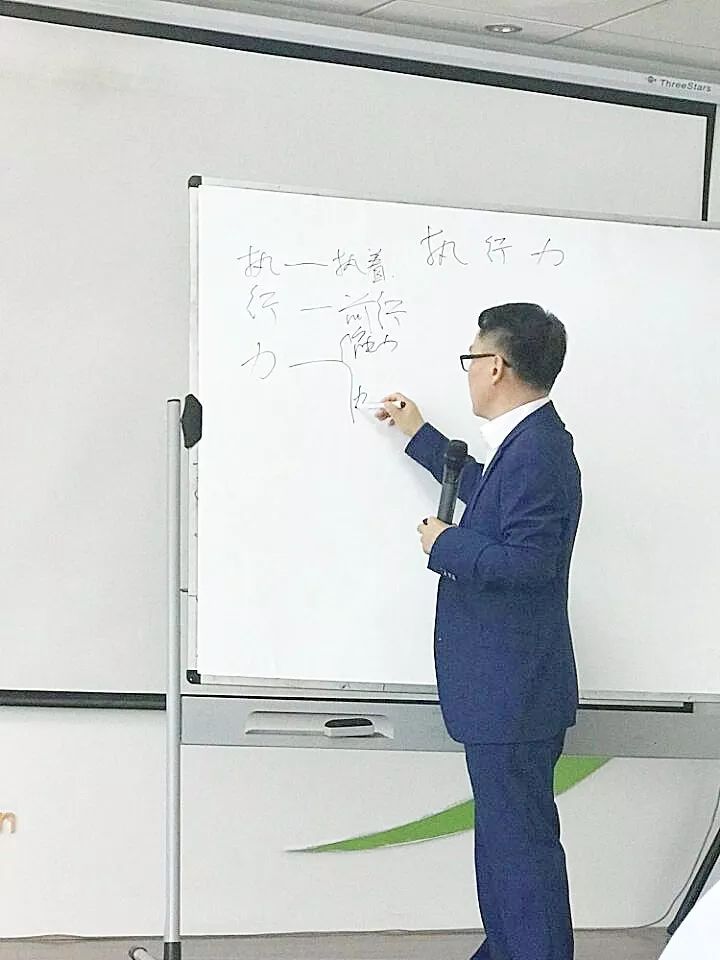 ThreeStars
执行力
执——执着
行—前行
力—能力
力
n